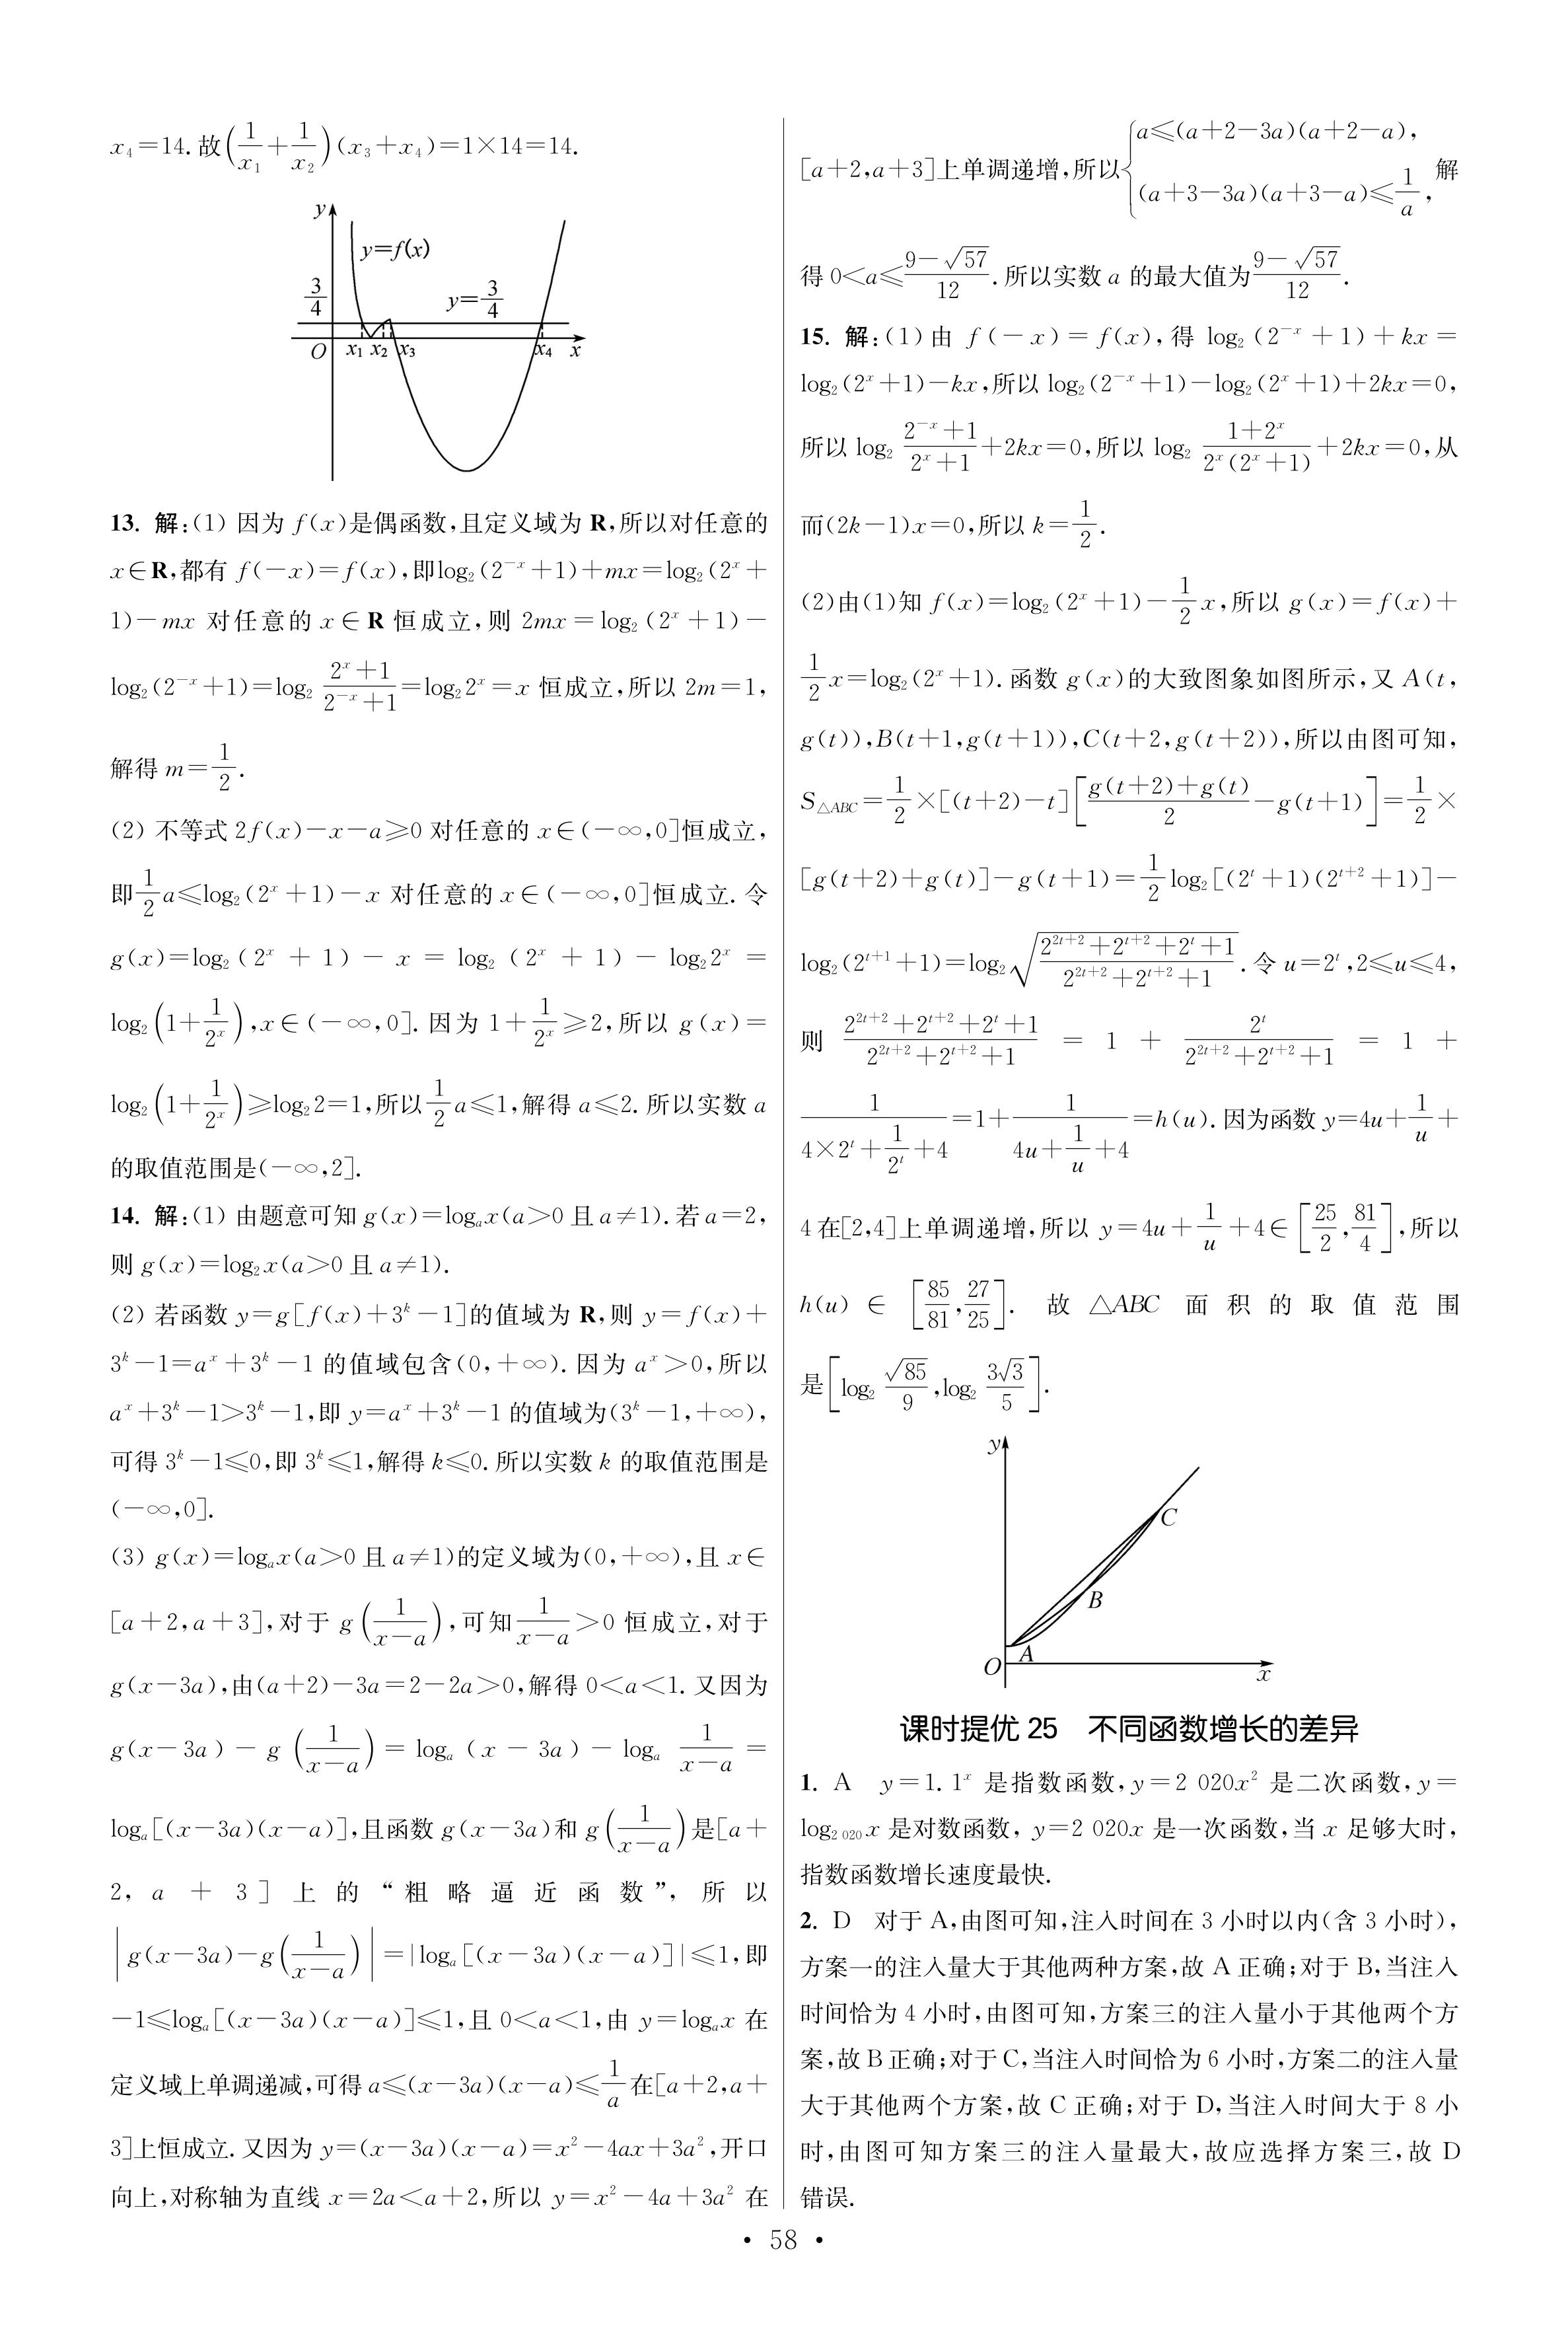 x₄=14.故(1/x₁+1/x₂)(x₃+x₄)=1×14=14.
y
y=f(x)
3/4
y=3/4
O x₁ x₂ x₃ x₄ x
13. 解:(1) 因为 f(x)是偶函数,且定义域为 R,所以对任意的
x∈R,都有 f(−x)=f(x),即log₂(2⁻ˣ+1)+mx=log₂(2ˣ+
1)−mx 对任意的 x∈R 恒成立,则 2mx=log₂(2ˣ+1)−
log₂(2⁻ˣ+1)=log₂ (2ˣ+1)/(2⁻ˣ+1)=log₂2ˣ=x 恒成立,所以 2m=1,
解得 m=1/2.
(2) 不等式 2f(x)−x−a⩾0 对任意的 x∈(−∞,0]恒成立,
即1/2a⩽log₂(2ˣ+1)−x 对任意的 x∈(−∞,0]恒成立. 令
g(x)=log₂(2ˣ+1)−x=log₂(2ˣ+1)−log₂2ˣ=
log₂(1+1/2ˣ),x∈(−∞,0]. 因为 1+1/2ˣ⩾2,所以 g(x)=
log₂(1+1/2ˣ)⩾log₂2=1,所以1/2a⩽1,解得 a⩽2. 所以实数 a
的取值范围是(−∞,2].
14. 解:(1) 由题意可知 g(x)=logₐx(a>0 且 a≠1). 若 a=2,
则 g(x)=log₂x(a>0 且 a≠1).
(2) 若函数 y=g[f(x)+3ᵏ−1]的值域为 R,则 y=f(x)+
3ᵏ−1=aˣ+3ᵏ−1 的值域包含(0,+∞). 因为 aˣ>0,所以
aˣ+3ᵏ−1>3ᵏ−1,即 y=aˣ+3ᵏ−1 的值域为(3ᵏ−1,+∞),
可得 3ᵏ−1⩽0,即 3ᵏ⩽1,解得 k⩽0. 所以实数 k 的取值范围是
(−∞,0].
(3) g(x)=logₐx(a>0 且 a≠1)的定义域为(0,+∞),且 x∈
[a+2,a+3],对于 g(1/(x−a)),可知1/(x−a)>0 恒成立,对于
g(x−3a),由(a+2)−3a=2−2a>0,解得 0<a<1. 又因为
g(x−3a)−g(1/(x−a))=logₐ(x−3a)−logₐ 1/(x−a)=
logₐ[(x−3a)(x−a)],且函数 g(x−3a)和 g(1/(x−a))是[a+
2,a+3]上的“粗略逼近函数”,所以
|g(x−3a)−g(1/(x−a))|=|logₐ[(x−3a)(x−a)]|⩽1,即
−1⩽logₐ[(x−3a)(x−a)]⩽1,且 0<a<1,由 y=logₐx 在
定义域上单调递减,可得 a⩽(x−3a)(x−a)⩽1/a在[a+2,a+
3]上恒成立. 又因为 y=(x−3a)(x−a)=x²−4ax+3a²,开口
向上,对称轴为直线 x=2a<a+2,所以 y=x²−4a+3a² 在
[a+2,a+3]上单调递增,所以{a⩽(a+2−3a)(a+2−a), (a+3−3a)(a+3−a)⩽1/a, 解
得 0<a⩽(9−√57)/12. 所以实数 a 的最大值为(9−√57)/12.
15. 解:(1) 由 f(−x)=f(x),得 log₂(2⁻ˣ+1)+kx=
log₂(2ˣ+1)−kx,所以 log₂(2⁻ˣ+1)−log₂(2ˣ+1)+2kx=0,
所以 log₂ (2⁻ˣ+1)/(2ˣ+1)+2kx=0,所以 log₂ (1+2ˣ)/(2ˣ(2ˣ+1))+2kx=0,从
而(2k−1)x=0,所以 k=1/2.
(2)由(1)知 f(x)=log₂(2ˣ+1)−1/2x,所以 g(x)=f(x)+
1/2x=log₂(2ˣ+1). 函数 g(x)的大致图象如图所示,又 A(t,
g(t)),B(t+1,g(t+1)),C(t+2,g(t+2)),所以由图可知,
S△ABC=1/2×[(t+2)−t][(g(t+2)+g(t))/2−g(t+1)]=1/2×
[g(t+2)+g(t)]−g(t+1)=1/2log₂[(2ᵗ+1)(2ᵗ⁺²+1)]−
log₂(2ᵗ⁺¹+1)=log₂√((2²ᵗ⁺²+2ᵗ⁺²+2ᵗ+1)/(2²ᵗ⁺²+2ᵗ⁺²+1)). 令 u=2ᵗ,2⩽u⩽4,
则 (2²ᵗ⁺²+2ᵗ⁺²+2ᵗ+1)/(2²ᵗ⁺²+2ᵗ⁺²+1)=1+2ᵗ/(2²ᵗ⁺²+2ᵗ⁺²+1)=1+
1/(4×2ᵗ+1/2ᵗ+4)=1+1/(4u+1/u+4)=h(u). 因为函数 y=4u+1/u+
4 在[2,4]上单调递增,所以 y=4u+1/u+4∈[25/2,81/4],所以
h(u)∈[85/81,27/25]. 故 △ABC 面积的取值范围
是[log₂ √85/9,log₂ 3√3/5].
y
C
B
A
O x
课时提优 25 不同函数增长的差异
1. A y=1.1ˣ 是指数函数,y=2 020x² 是二次函数,y=
log₂ ₀₂₀x 是对数函数, y=2 020x 是一次函数,当 x 足够大时,
指数函数增长速度最快.
2. D 对于 A,由图可知,注入时间在 3 小时以内(含 3 小时),
方案一的注入量大于其他两种方案,故 A 正确;对于 B,当注入
时间恰为 4 小时,由图可知,方案三的注入量小于其他两个方
案,故 B 正确;对于 C,当注入时间恰为 6 小时,方案二的注入量
大于其他两个方案,故 C 正确;对于 D,当注入时间大于 8 小
时,由图可知方案三的注入量最大,故应选择方案三,故 D
错误.
· 58 ·